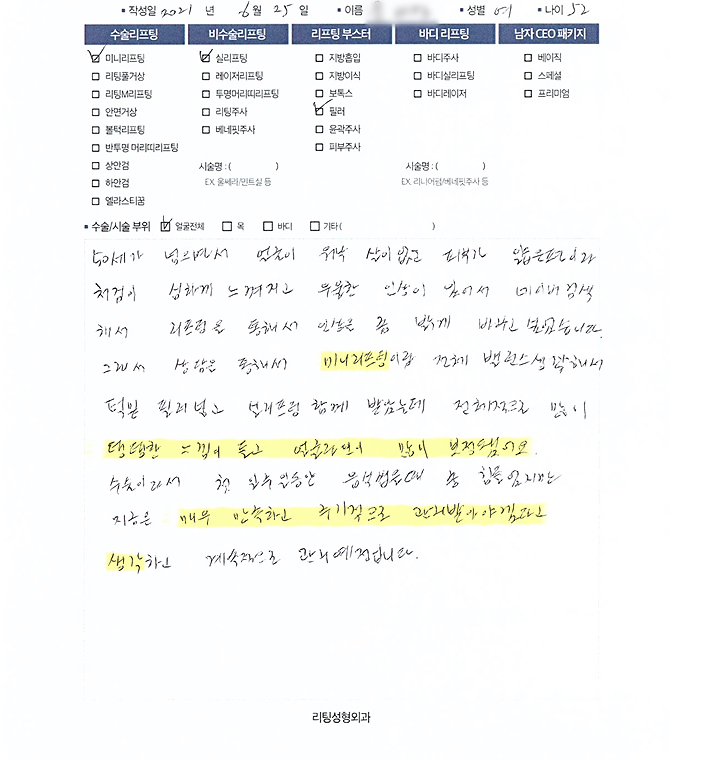 ▪ 작성일 2021 년 6월 25일 ▪ 이름 ▪ 성별 여 ▪ 나이 52
수술리프팅 비수술리프팅 리프팅 부스터 바디 리프팅 남자 CEO 패키지
미니리프팅 실리프팅 지방흡입 바디주사 베이직
리팅풀거상 레이저리프팅 지방이식 바디실리프팅 스페셜
리팅M리프팅 투명머리띠리프팅 보톡스 바디레이저 프리미엄
안면거상 리팅주사 필러
볼턱리프팅 베네핏주사 윤곽주사
반투명 머리띠리프팅 피부주사
상안검 시술명 : ( ) 시술명 : ( )
하안검 EX. 울쎄라/민트실 등 EX. 리니어펌/베네핏주사 등
엘라스티꿈
▪ 수술/시술 부위 얼굴전체 목 바디 기타 ( )
50세가 넘으면서 얼굴이 워낙 살이 없고 피부가 얇은편이라
처짐이 심하게 느껴지고 우울한 인상이 남어서 네이버 검색
해서 리프팅을 통해서 인상을 좀 밝게 바꾸고 싶었습니다.
그래서 상담을 통해서 미니리프팅이랑 전체 밸런스생각해서
턱밑 필러 넣고 실리프팅 함께 받았는데 전체적으로 많이
탱탱한 느낌이 들고 얼굴라인이 많이 보정됐어요.
수술이라서 첫 일주일동안 음식씹을때 좀 힘들었지만
지금은 매우 만족하고 주기적으로 관리받아야겠다고
생각하고 계속적으로 관리예정입니다.
리팅성형외과